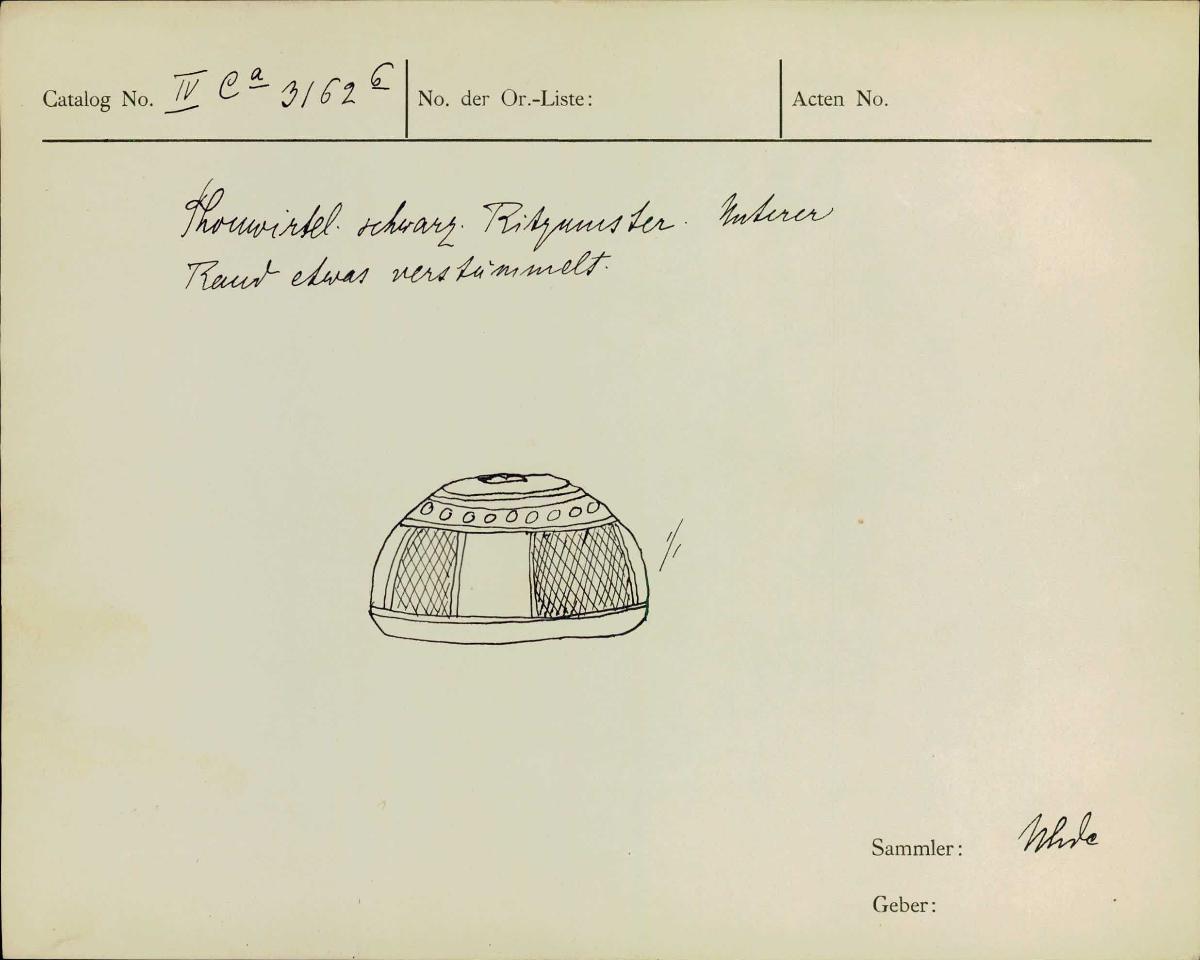 Catalog No. IV Ca 3162 b No. der Or.-Liste: Acten No.
Thonwirtel. schwarz. Ritzmuster. Unterer
Rand etwas verstümmelt.
1/1
Sammler: Uhde
Geber: